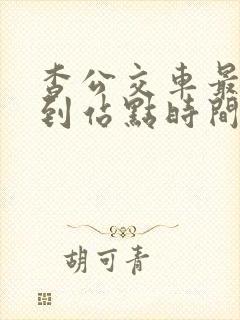 查公交車最
到佔點時間
胡可青